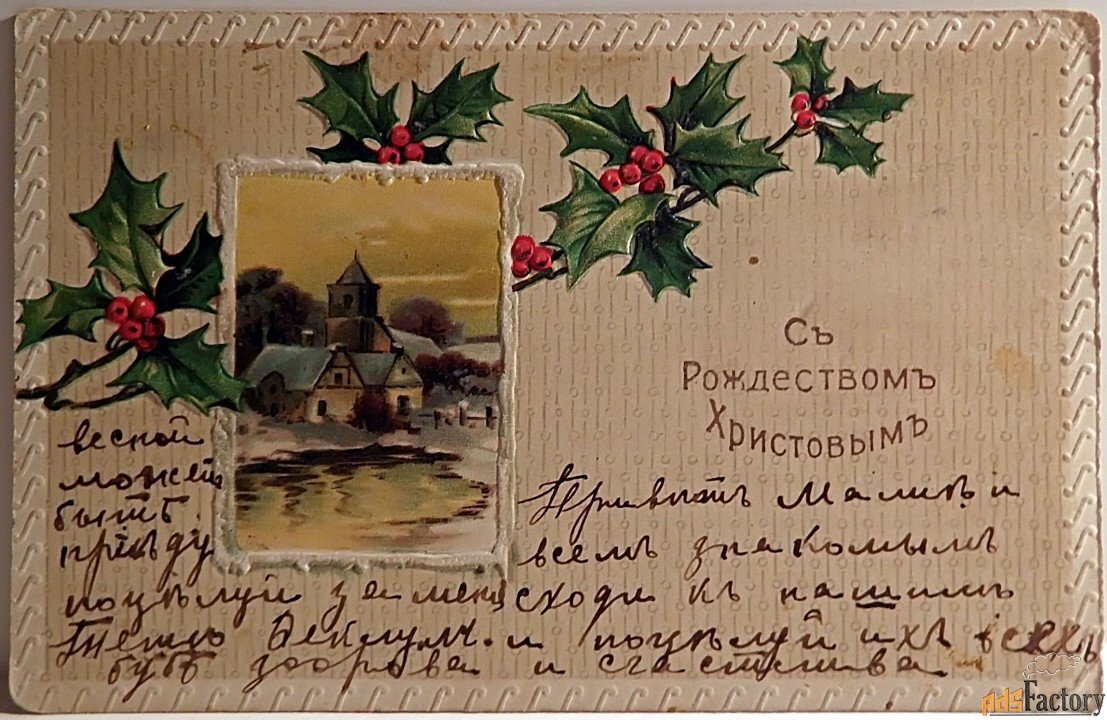 Съ
Рождествомъ
Христовымъ
весной
можетъ
быть
пріѣду
Привѣтъ Малик и
всемъ знакомымъ
поцѣлуй за меня сходи къ нашимъ
и поцѣлуй ихъ всехъ
будь здорова и счастлива
AdsFactory